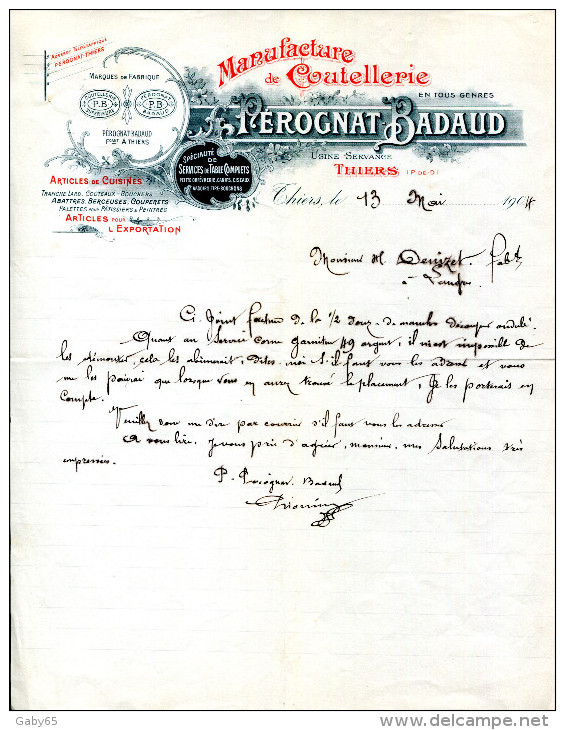 ADRESSE TÉLÉGRAPHIQUE
PÉROGNAT-THIERS
MARQUES DE FABRIQUE
COUTELLERIE
P.B
SUPÉRIEURE
PÉROGNAT
P.B
BADAUD
PÉROGNAT-BADAUD
FBANT A THIERS
Manufacture
de Coutellerie
EN TOUS GENRES
PÉROGNAT-BADAUD
USINE SERVANCE
THIERS (P.-DE-D.)
SPÉCIALITÉ
DE
SERVICES DE TABLE COMPLETS
PETITE ORFÈVRERIE, CANIFS, CISEAUX
RASOIRS, TIRE-BOUCHONS
ARTICLES DE CUISINES
TRANCHE LARD, COUTEAUX-BOUCHERS
ABATTRES, BERCEUSES, COUPERETS
PALETTES POUR PÂTISSIERS & PEINTRES
ARTICLES POUR
L'EXPORTATION
Thiers, le 13 Mai 1904
Monsieur H. Denizet. Fabt
à Langres
Ci Joint facture de la 1/2 douz. de manches découper ondulé
Quant au service corne garniture 49 argent, il m'est impossible de
les démonter, cela les abîmerait, dites-moi s'il faut vous les adresser et vous
me les paierai que lorsque vous en aurez trouvé le placement, Je les porterais en
compte.
Veuillez donc me dire par courrier s'il faut vous les adresser
A vous lire, Je vous prie d'agréer, monsieur, mes salutations très
empressées.
P. Pérognat Badaud
Gaby65
www.delcampe.net